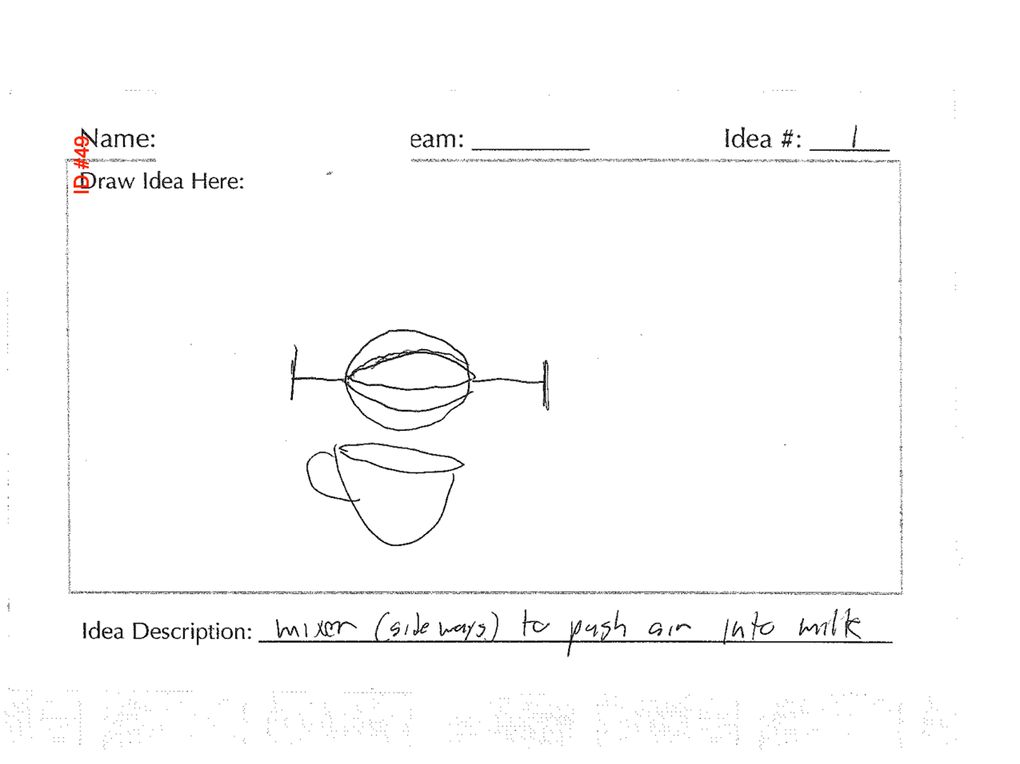 Name: eam: Idea #: 1
ID #49
Draw Idea Here:
Idea Description: mixer (sideways) to push air into milk